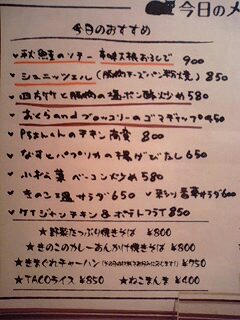 今日のメ
今日のおすすめ
秋鮭のソテー 辛味大根おろしで 900
シュニッツェル(豚肉チーズパン粉焼) 850
四方竹と豚肉の塩ポン酢炒め 580
おくらandブロッコリーのゴマ 450
のチキン南蛮 800
なすとパプリカの揚げびたし 650
小松菜ベーコン炒め 580
きのこ温サラダ 650 サラダ 600
チキン&ポテトフライ 850
★野菜たっぷり焼きそば ¥800
★きのこのカレーあんかけ焼きそば ¥800
★きまぐれチャーハン ¥750
★TACOライス ¥850 ★ねこまんま ¥400